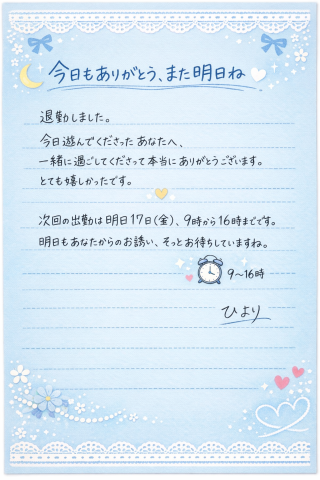 今日もありがとう、また明日ね
退勤しました。
今日遊んでくださった あなたへ、
一緒に過ごしてくださって本当にありがとうございます。
とても嬉しかったです。
次回の出勤は明日17日(金)、9時から16時までです。
明日もあなたからのお誘い、そっとお待ちしていますね。
9〜16時
ひより